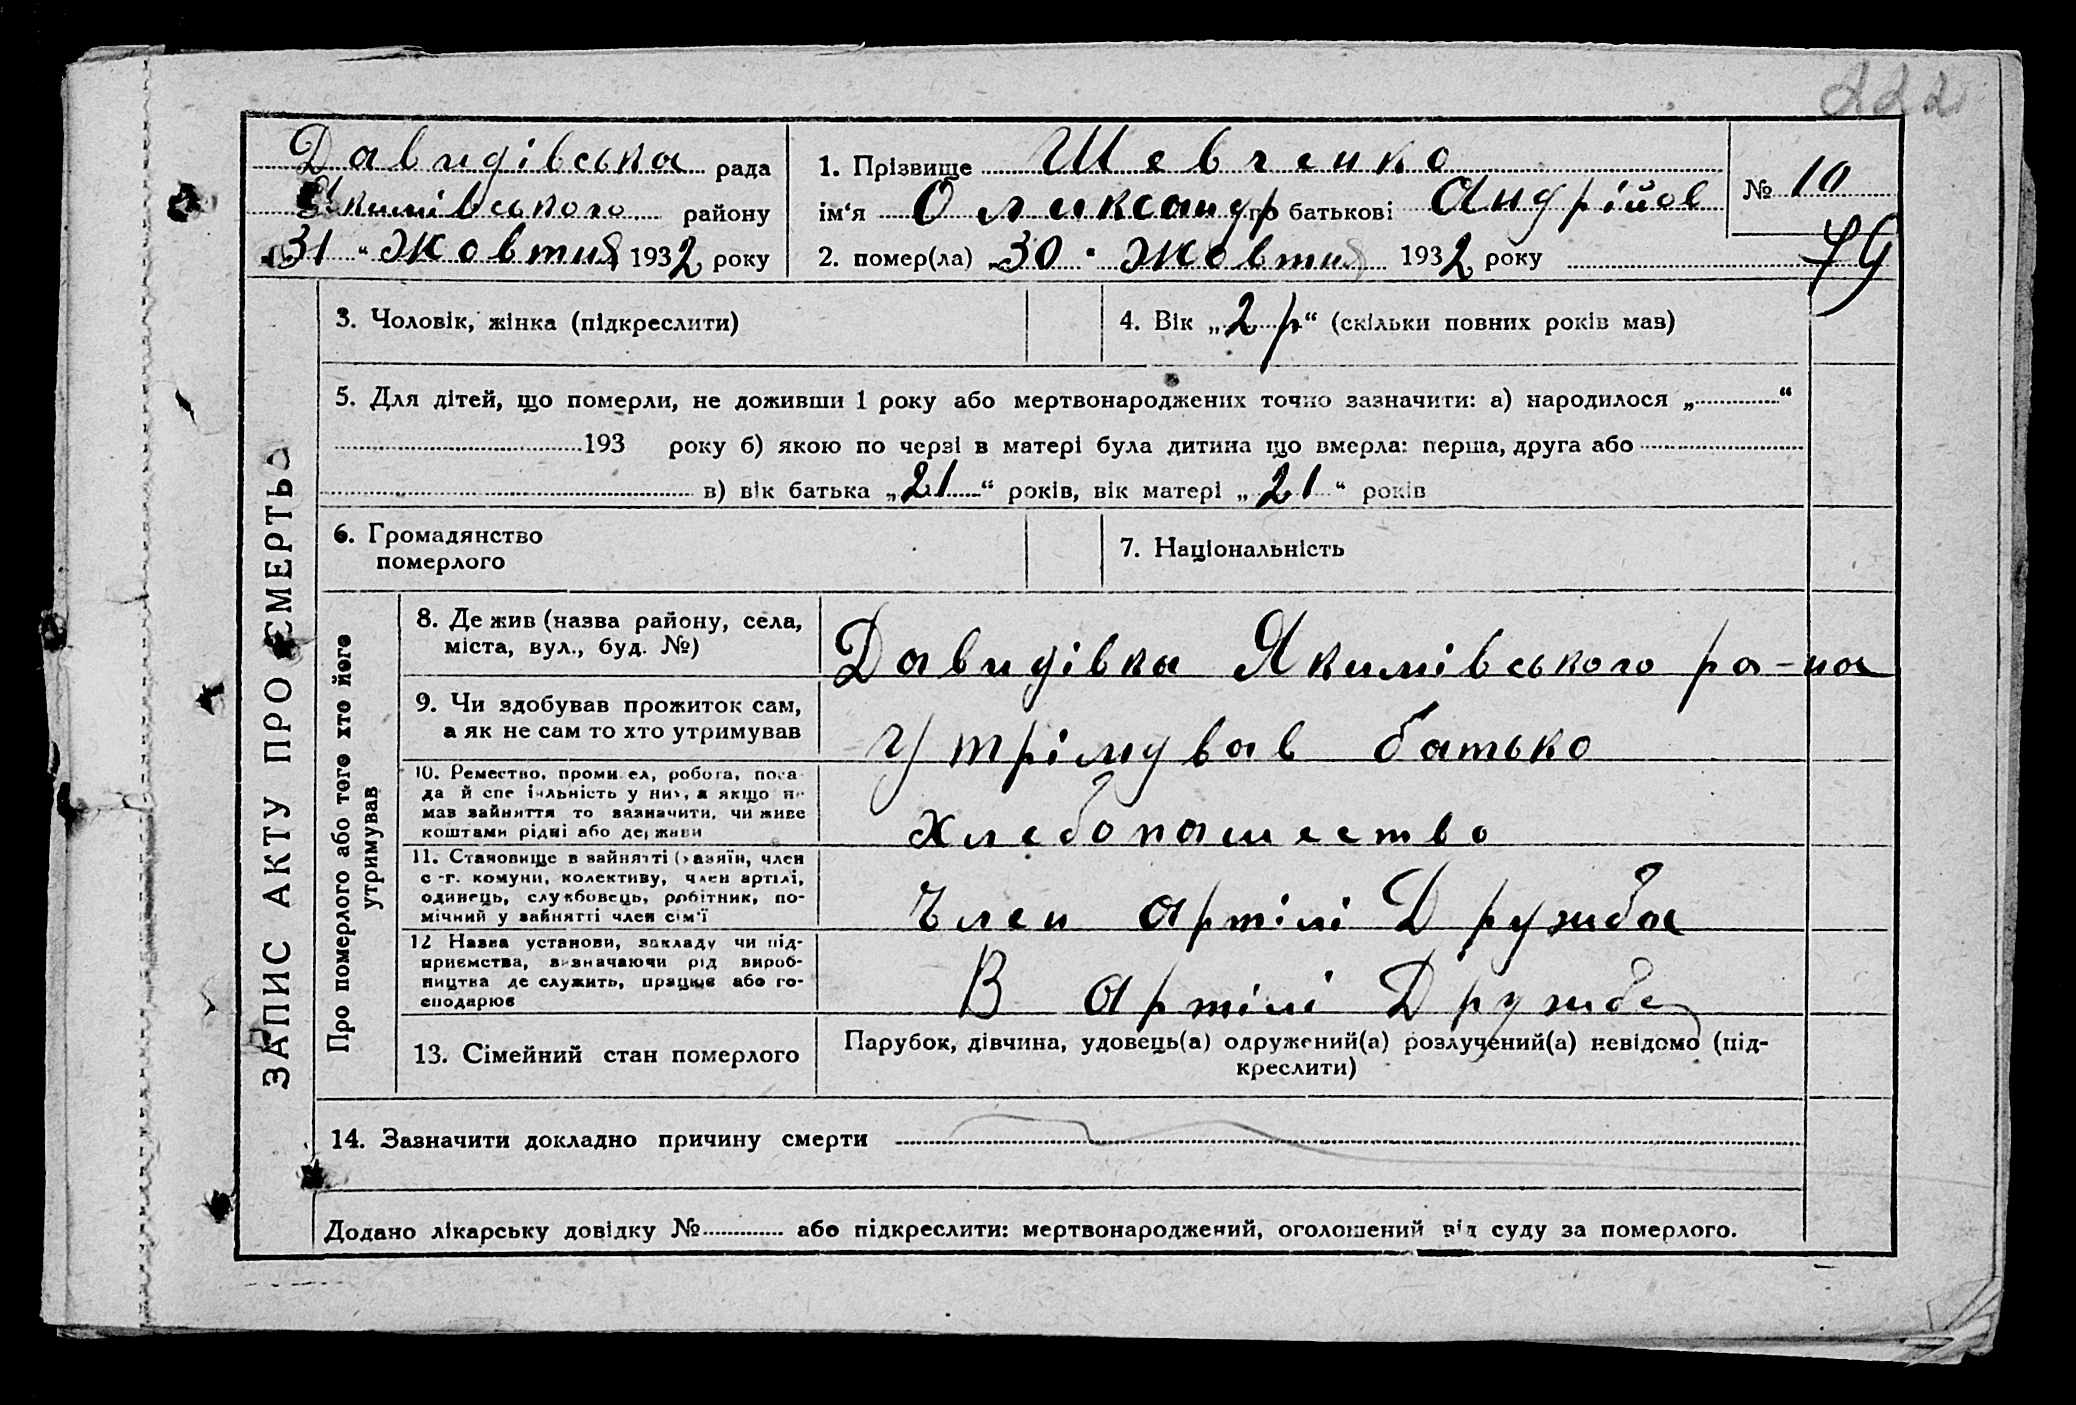 222
Давидівська рада
Якимівського району
„31“ Жовтня 1932 року
1. Прізвище Шевченко
ім‘я Олександр по батькові Андрійов
2. помер(ла) 30 " Жовтня 1932 року
№ 10
79
ЗАПИС АКТУ ПРО СМЕРТЬ
3. Чоловік, жінка (підкреслити)
4. Вік „2 р“ (скільки повних років мав)
5. Для дітей, що померли, не доживши 1 року або мертвонароджених точно зазначити: а) народилося „ “
193 року б) якою по черзі в матері була дитина що вмерла: перша, друга або
в) вік батька „21“ років, вік матері „21“ років
6. Громадянство
померлого
7. Національність
Про померлого або того хто його
утримував
8. Де жив (назва району, села,
міста, вул., буд. №)
Давидівка Якимівського ра-на
9. Чи здобував прожиток сам,
а як не сам то хто утримував
Утрімував батько
10. Ремество, промисел, робота, поса-
да й спеціяльність у них, а якщо не
мав зайняття то зазначити, чи живе
коштами рідні або держави
Хлебопашество
11. Становище в зайнятті (хазяїн, член
с.-г. комуни, колективу, член артілі,
одинець, службовець, робітник, по-
мічний у зайнятті член сім'ї
Член артілі Дружба
12 Назва установи, закладу чи під-
приємства, визначаючи рід вироб-
ництва де служить, працює або го-
сподарює
В артілі Дружбе
13. Сімейний стан померлого
Парубок, дівчина, удовець(а) одружений(а) розлучений(а) невідомо (під-
креслити)
14. Зазначити докладно причину смерти
Додано лікарську довідку № або підкреслити: мертвонароджений, оголошений від суду за померлого.